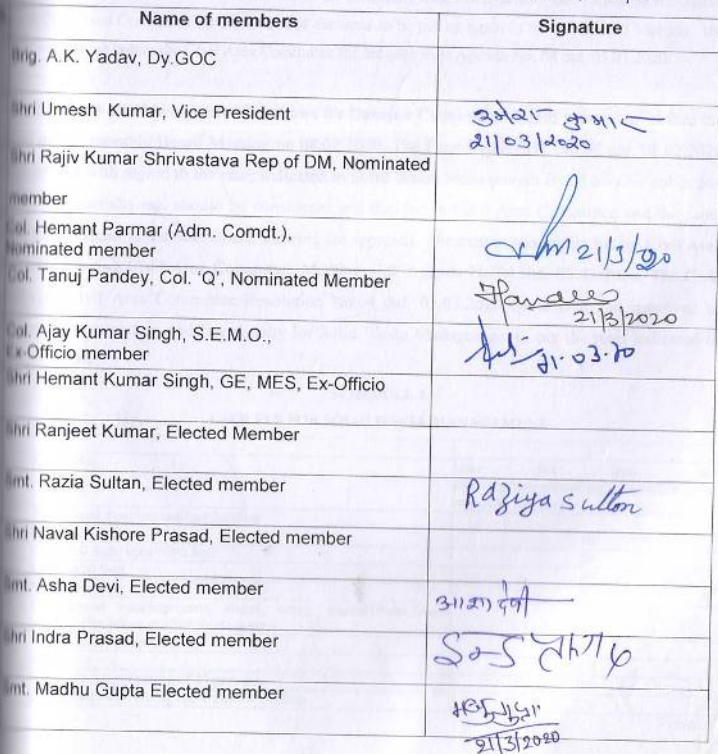 Name of members Signature
Brig. A.K. Yadav, Dy.GOC
Shri Umesh Kumar, Vice President उमेश कुमार
21/03/2020
Shri Rajiv Kumar Shrivastava Rep of DM, Nominated
member
Col. Hemant Parmar (Adm. Comdt.),
Nominated member 21/3/20
Col. Tanuj Pandey, Col. 'Q', Nominated Member TPandey
21/3/2020
Col. Ajay Kumar Singh, S.E.M.O.,
Ex-Officio member 21.03.20
Shri Hemant Kumar Singh, GE, MES, Ex-Officio
Shri Ranjeet Kumar, Elected Member
Smt. Razia Sultan, Elected member Raziya Sultan
Shri Naval Kishore Prasad, Elected member
Smt. Asha Devi, Elected member आशा देवी
Shri Indra Prasad, Elected member इन्द्र प्रसाद
Smt. Madhu Gupta Elected member मधु गुप्ता
21/3/2020